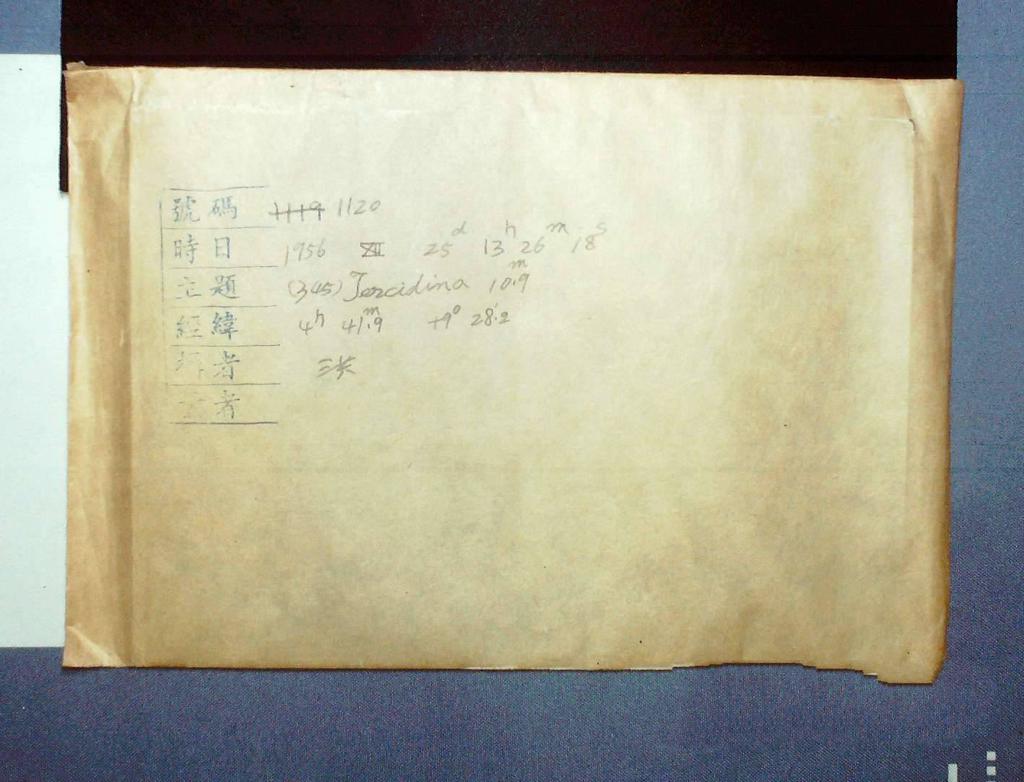 號碼 1119 1120
時日 1956 XII 25d 13h 26m 18s
主題 (345) Tercidina 10m.9
經緯 4h 41m.9 +9° 28'.2
者
者